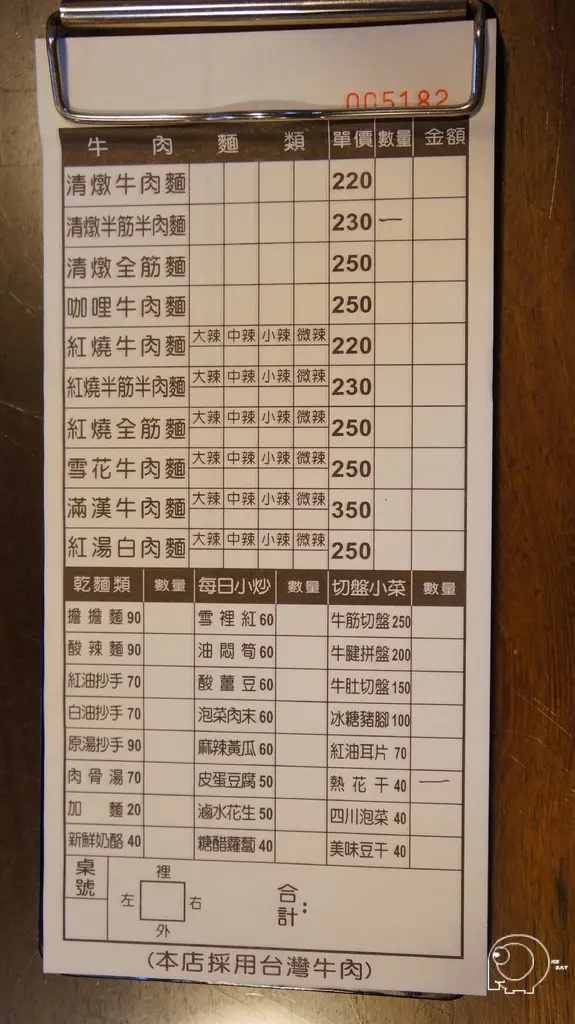 005182
牛肉麵類 單價 數量 金額
清燉牛肉麵 220
清燉半筋半肉麵 230 一
清燉全筋麵 250
咖哩牛肉麵 250
紅燒牛肉麵 大辣 中辣 小辣 微辣 220
紅燒半筋半肉麵 大辣 中辣 小辣 微辣 230
紅燒全筋麵 大辣 中辣 小辣 微辣 250
雪花牛肉麵 大辣 中辣 小辣 微辣 250
滿漢牛肉麵 大辣 中辣 小辣 微辣 350
紅湯白肉麵 大辣 中辣 小辣 微辣 250
乾麵類 數量 每日小炒 數量 切盤小菜 數量
擔擔麵 90 雪裡紅 60 牛筋切盤 250
酸辣麵 90 油悶筍 60 牛腱拼盤 200
紅油抄手 70 酸薑豆 60 牛肚切盤 150
白油抄手 70 泡菜肉末 60 冰糖豬腳 100
原湯抄手 90 麻辣黃瓜 60 紅油耳片 70
肉骨湯 70 皮蛋豆腐 50 熱花干 40 一
加麵 20 滷水花生 50 四川泡菜 40
新鮮奶酪 40 糖醋蘿蔔 40 美味豆干 40
桌號 裡
左 右 合計:
外
(本店採用台灣牛肉)
ICE EAT